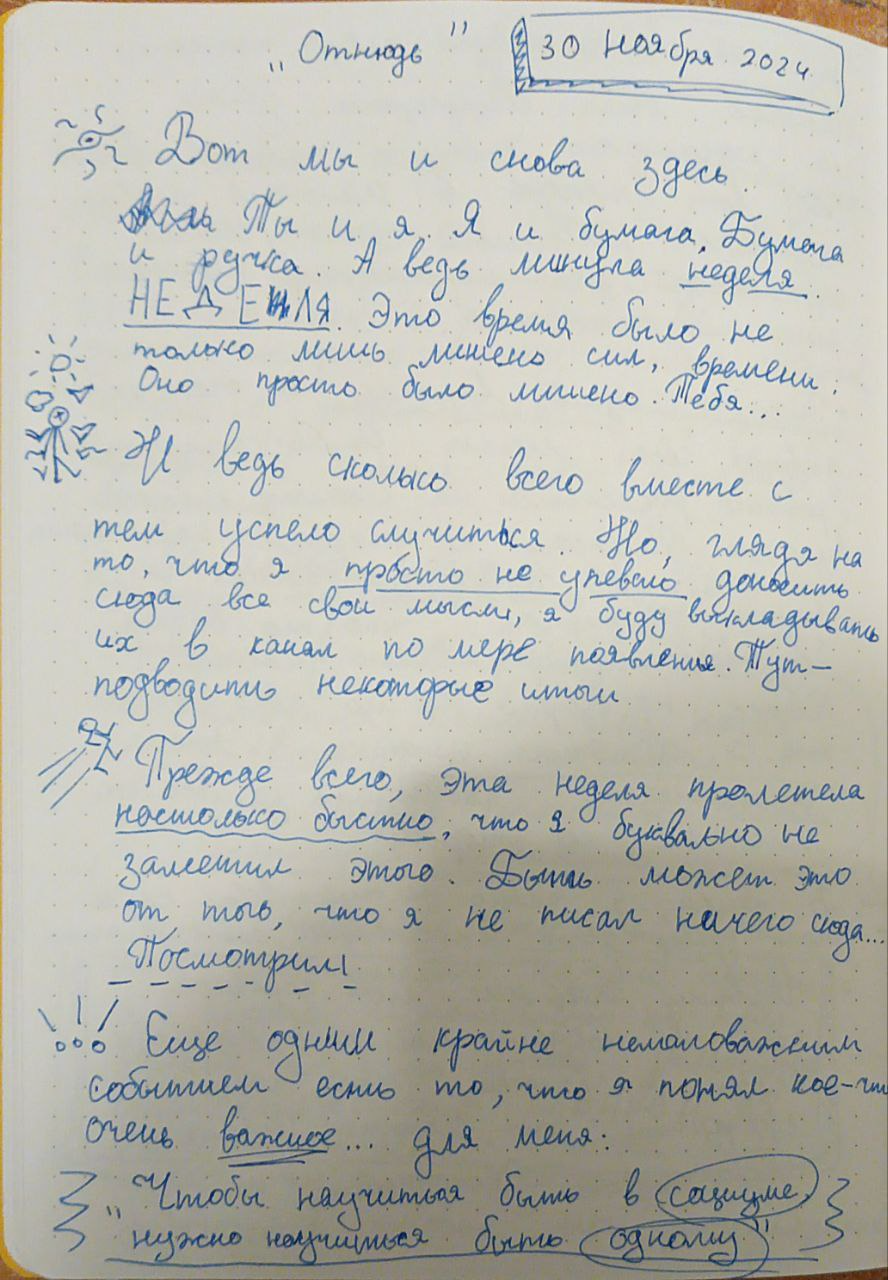 „Отнюдь"
30 Ноября 2024
Вот мы и снова здесь.
Ты и я. Я и бумага. Бумага
и ручка. А ведь минула неделя.
НЕДЕЛЯ. Это время было не
только лишь лишено сил, времени.
Оно просто было лишено Тебя...
И ведь сколько всего вместе с
тем успело случиться. Но, глядя на
то, что я просто не успеваю доносить
сюда все свои мысли, я буду выкладывать
их в канал по мере появления. Тут —
подводить некоторые итоги
Прежде всего, эта неделя пролетела
настолько быстро, что я буквально не
заметил этого. Быть может это
от того, что я не писал ничего сюда...
Посмотрим
!!! Еще одним крайне немаловажным
событием есть то, что я понял кое-что
очень важное... для меня:
„Чтобы научиться быть в социуме,
нужно научиться быть одному"